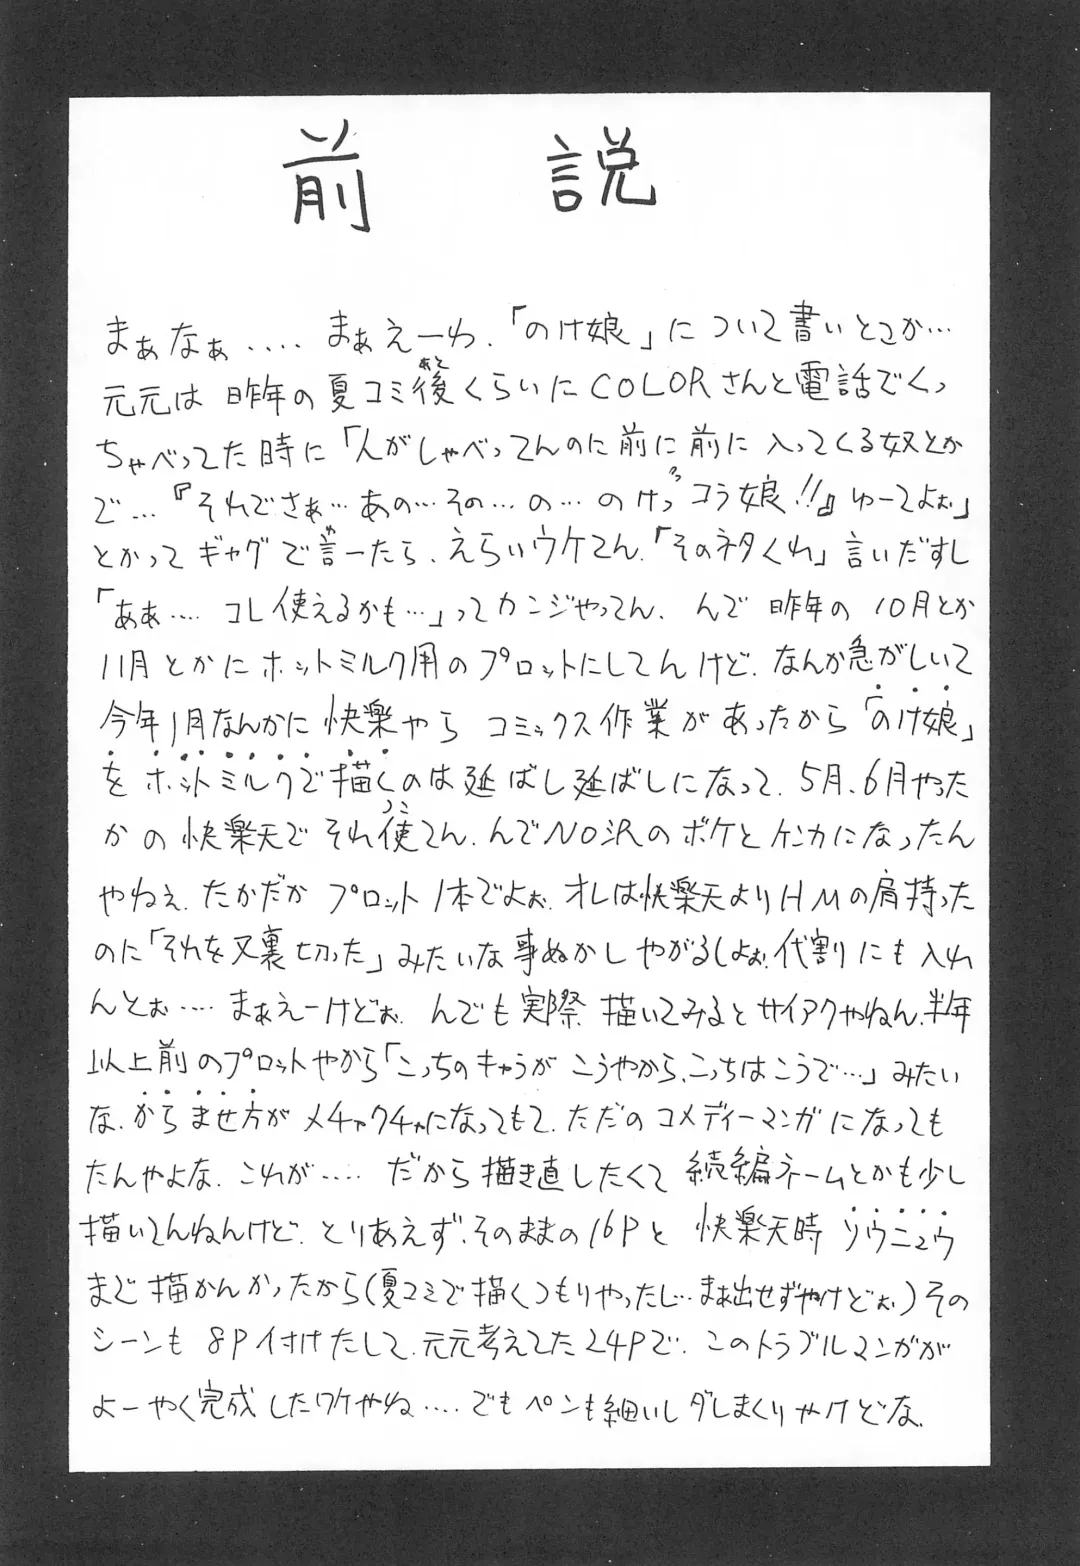 前説
まぁなぁ.... まぁえーわ、「のけ娘」について書いとこか…
元元は昨年の夏コミ後くらいにCOLORさんと電話でくっ
ちゃべってた時に「人がしゃべってんのに前に前に入ってくる奴とか
で…『それでさぁ…あの…その…の…のけっコラ娘!!』ゆーてよぉ」
とかってギャグで言ーたら、えらいウケてん、「そのネタくれ」言いだすし
「あぁ.... コレ使えるかも…」ってカンジやってん、んで昨年の10月とか
11月とかにホットミルク用のプロットにしてんけど、なんか急がしいて
今年1月なんかに快楽やら コミックス作業があったから「のけ娘」
をホットミルクで描くのは延ばし延ばしになって、5月、6月やった
かの快楽天でそれ使てん、んでNO沢のボケとケンカになったん
やねぇ、たかだか プロット1本でよぉ、オレは快楽天よりHMの肩持った
のに「それを又裏切った」みたいな事ぬかしやがるしよぉ、代割にも入れ
んとぉ.... まぁえーけどぉ、んでも実際描いてみるとサイアクやねん、半年
以上前のプロットやから「こっちのキャラがこうやから、こっちはこうで…」みたい
な、からませ方がメチャクチャになってもて、ただのコメディーマンガになっても
たんやよな、これが.... だから描き直したくて続編ネームとかも少し
描いてんねんけど、とりあえず、そのままの16Pと 快楽天時ソウニュウ
まで描かんかったから(夏コミで描くつもりやったし…まぁ出せずやけどぉ)その
シーンも8P付けたして、元元考えてた24Pで、このトラブルマンガが
よーやく完成したワケやね.... でもペンも細いしダレまくりやけどな、